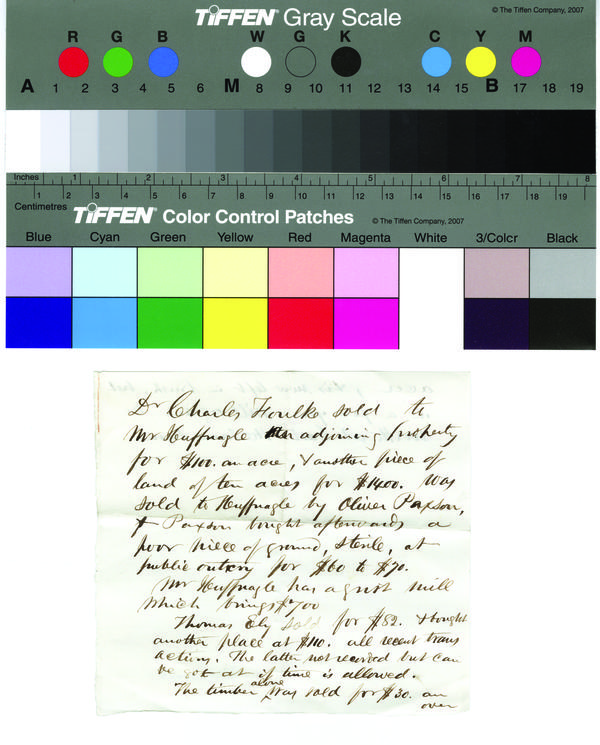 TIFFEN® Gray Scale
© The Tiffen Company, 2007
R G B W G K C Y M
A 1 2 3 4 5 6 M 8 9 10 11 12 13 14 15 B 17 18 19
Inches 1 2 3 4 5 6 7 8
Centimetres 1 2 3 4 5 6 7 8 9 10 11 12 13 14 15 16 17 18 19
TIFFEN® Color Control Patches
© The Tiffen Company, 2007
Blue Cyan Green Yellow Red Magenta White 3/Color Black
Dr Charles Foulke sold to
Mr Huffnagle adjoining property
for $100. an acre, & another piece of
land of ten acres for $1400. was
sold to Huffnagle by Oliver Paxson,
& Paxson bought afterwards a
poor piece of ground, sterile, at
public outcry for $60 to $70.
Mr Huffnagle has a grist mill
which brings $700
Thomas Ely sold for $82. & bought
another place at $110. all recent trans
actions. The latter not recorded but can
be got at if time is allowed.
The timber alone was sold for $30. an
over